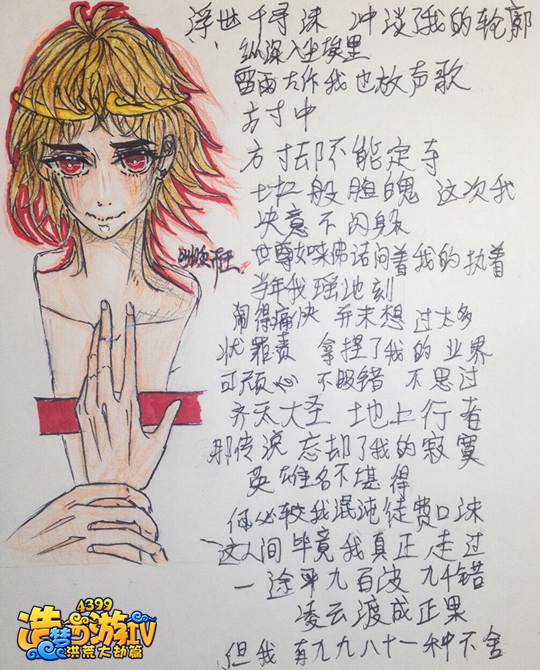 浮世千寻沫 冲淡了我的轮廓
纵深入尘埃里
雷雨大作我也放声歌
方寸中
方寸却不能定夺
七十二般胆魄 这次我
决意不闪躲
世尊如来佛诘问着我的执着
当年我瑶池刻
闹得痛快 并未想过太多
状罪责 拿捏了我的业果
可顽心 不服错 不思过
齐天大圣 地上行者
那传说 忘却了我的寂寞
英雄名不堪得
何必较我混沌徒费口沫
这人间毕竟我真正走过
一途平九百波 九千错
凌云渡成正果
但我有九九八十一种不舍
4399
造梦西游IV
洪荒大劫篇